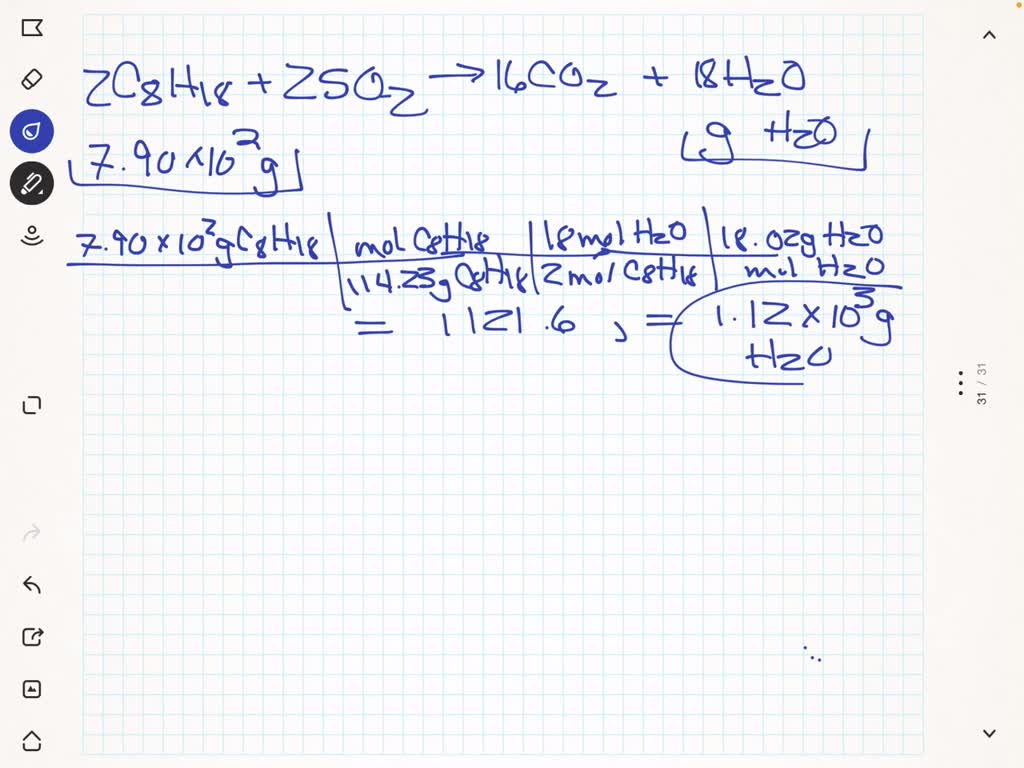 2C8H18 + 25O2 → 16CO2 + 18H2O
7.90×10²g g H2O
7.90×10²gC8H18 | mol C8H18 | 18mol H2O | 18.02g H2O
114.23g C8H18 | 2 mol C8H18 | mol H2O
= 1121.6, = 1.12×10³g
H2O
31 / 31